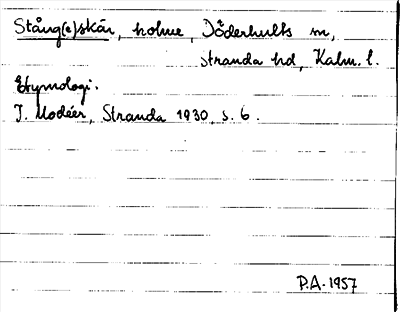 Stång(e)skär, holme, Döderhults sn,
Stranda hd, Kalm. l.
Etymologi.
I. Modéer, Stranda 1930, s. 6.
P.A. 1957